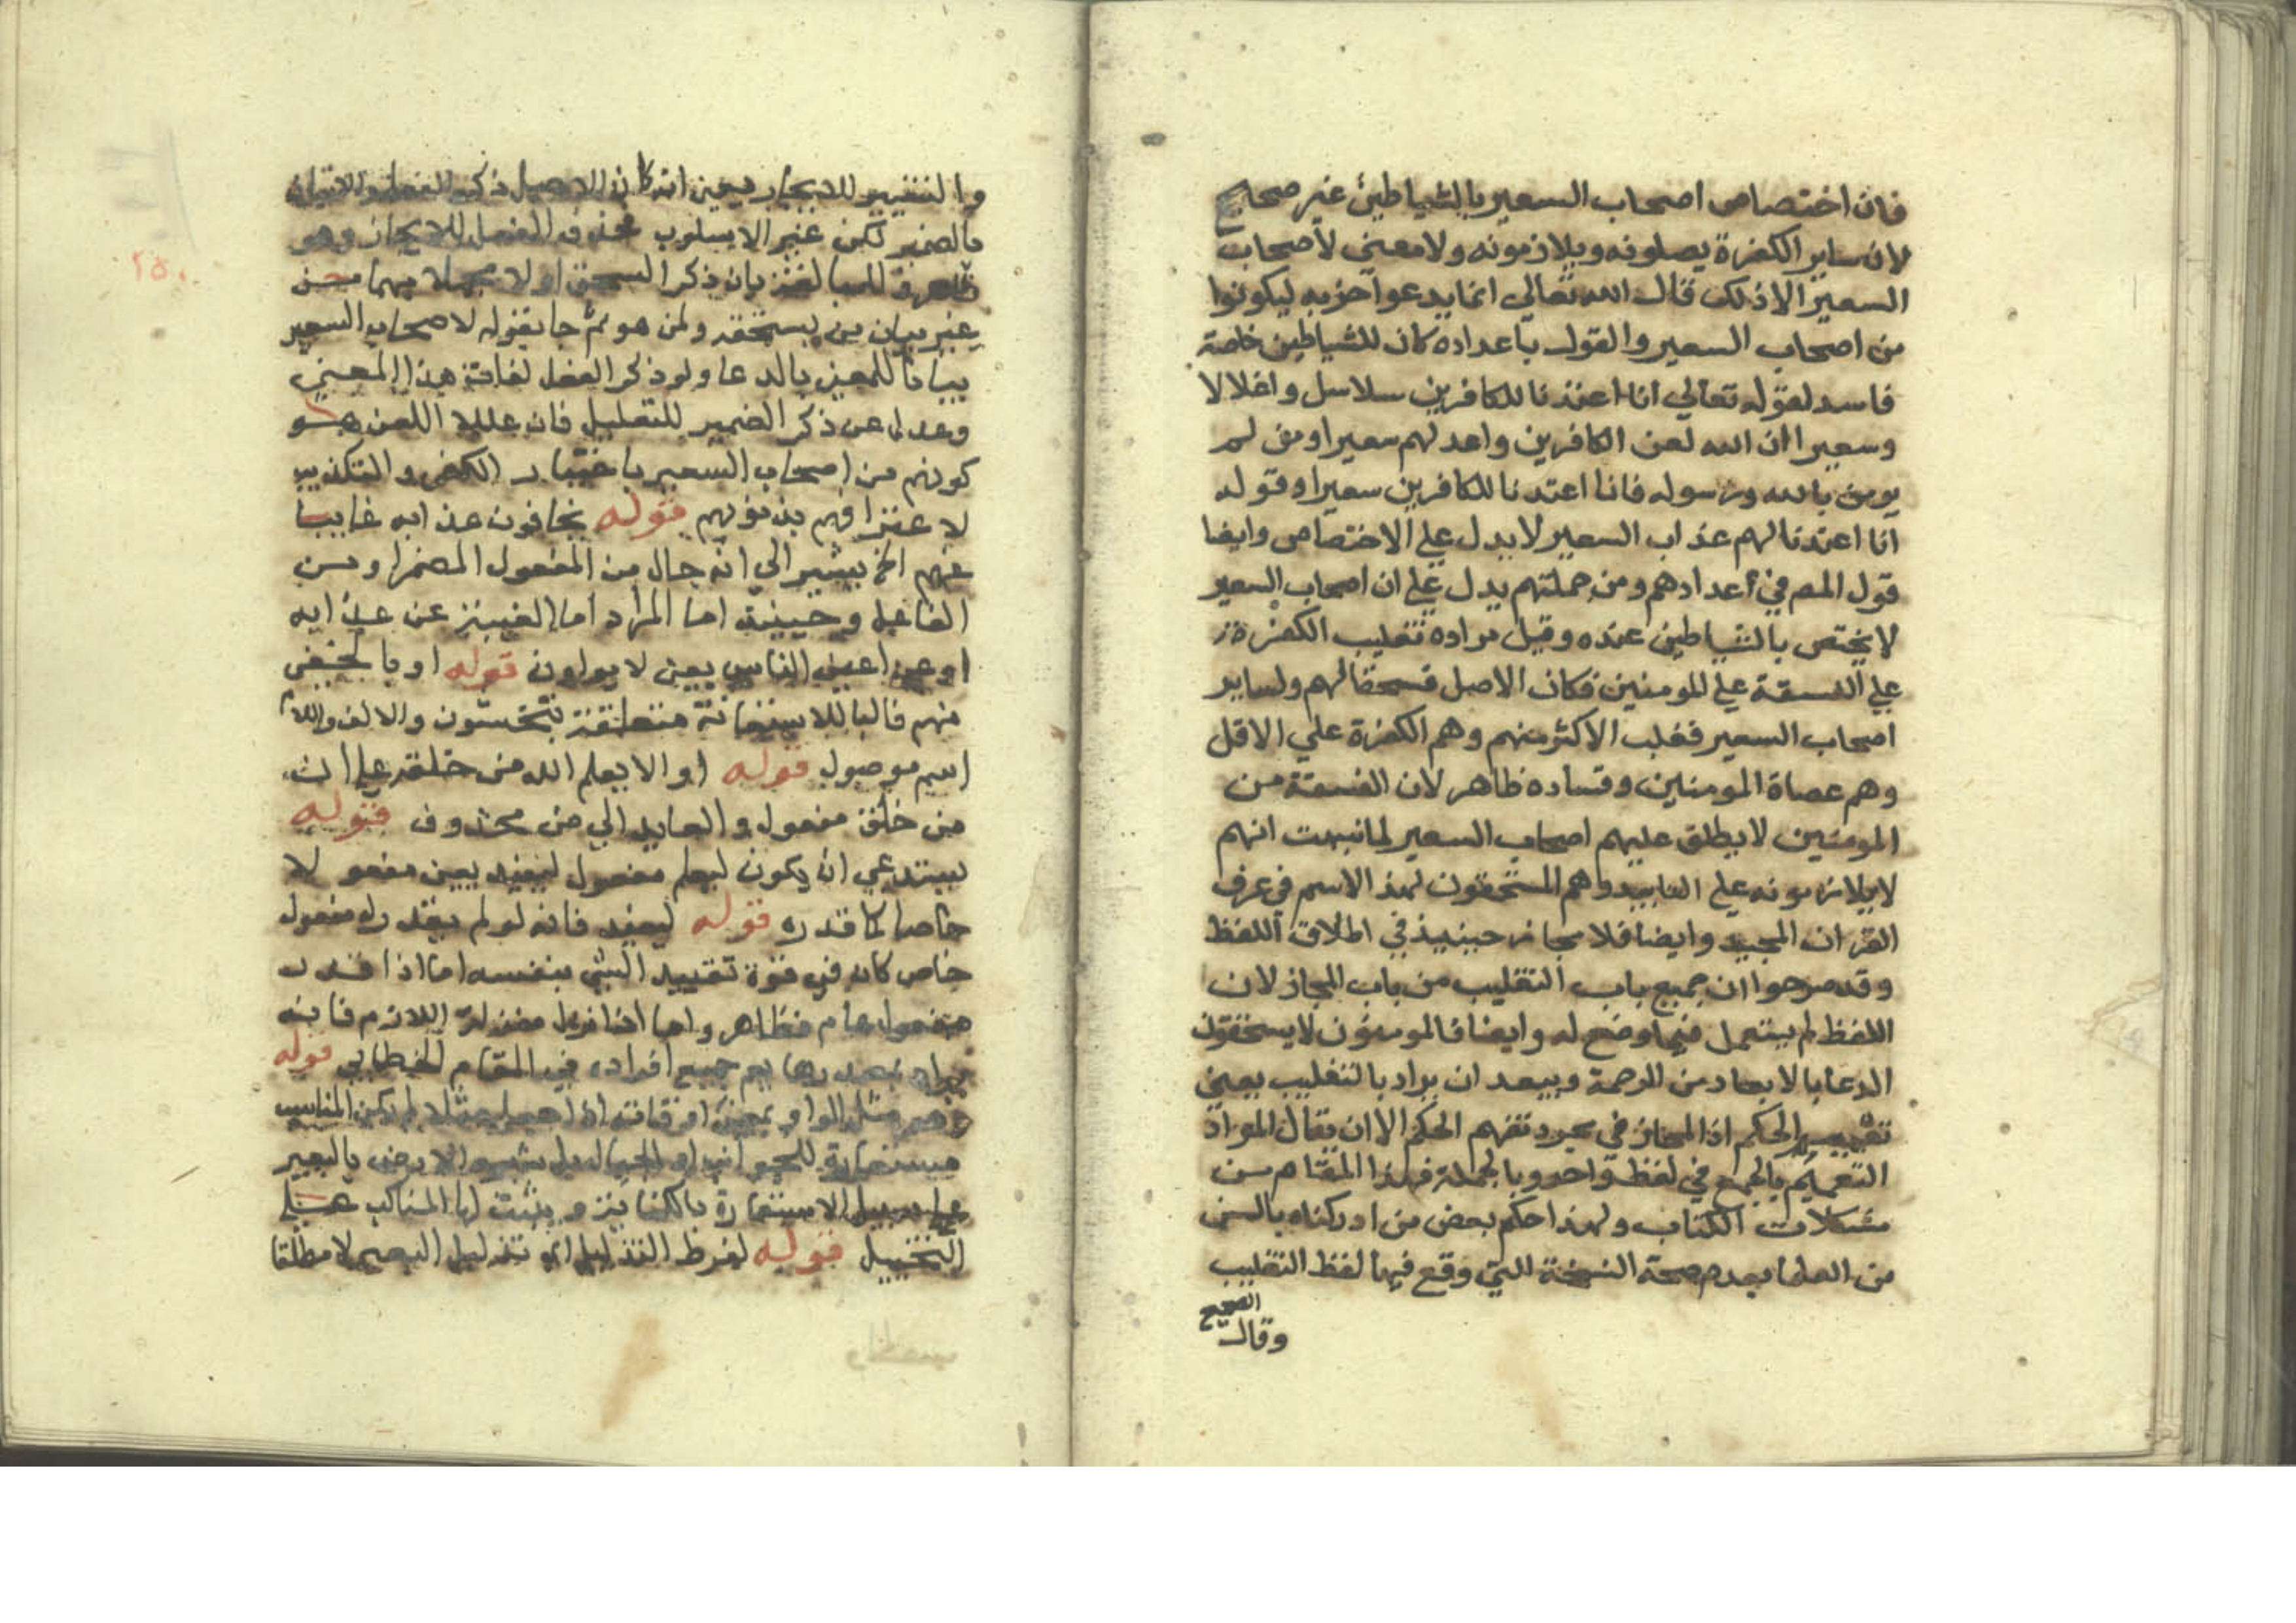 فان اختصاص اصحاب السعير بالشياطين غير صحيح
لان ساير الكفرة يصلونه ويلازمونه ولا معنى لاصحاب
السعير الا ذلك قال الله تعالي انما يدعوا حزبه ليكونوا
من اصحاب السعير والقول باعداده كان للشياطين خاصة
فاسد لقوله تعالي انا اعتدنا للكافرين سلاسل واغلالا
وسعيرا ان الله لعن الكافرين واعد لهم سعيرا ومن لم
يومن بالله ورسوله فانا اعتدنا للكافرين سعيرا وقوله
انا اعتدنا لهم عذاب السعير لا يدل علي الاختصاص وايضا
قول المص في اعدادهم ومن جملتهم يدل علي ان اصحاب السعير
لا يختص بالشياطين عنده وقيل مراده تغليب الكفرة
علي الفسقة علي المومنين فكان الاصل فسحقا لهم ولساير
اصحاب السعير فغلب الاكثر منهم وهم الكفرة علي الاقل
وهم عصاة المومنين وفساده ظاهر لان الفسقة من
المومنين لا يطلق عليهم اصحاب السعير لما نبهت انهم
لا يلازمونه علي التابيد وهم المستحقون لهذا الاسم في عرف
القران المجيد وايضا فلا مجاز حينيذ في اطلاق اللفظ
وقد صرحوا ان جميع باب التغليب من باب المجاز لان
اللفظ لم يستعمل فيما وضع له وايضا فالمومنون لا يستحقون
الدعا بالابعاد من الرحمة ويبعد ان يراد بالتغليب بمعنى
تعميم الحكم اذ المجاز في مجرد تفهم الحكم الا ان يقال المراد
التعميم بالجمع في لفظ واحد وبالجملة فهذا المقام من
مشكلات الكتاب ولهذا حكم بعض من ادركناه بالسن
من العلما بعدم صحة النسخة التي وقع فيها لفظ التغليب
الصحيح
وقال
٢٥٠
والتغيير للايجاز يعني انه كان الاصل ذكر الفعل والاتيان
بالضمير لكن غير الاسلوب بحذف الفعل للايجاز وهو
ظاهر وللمبالغة بان ذكر السحق اولا مجملا مبهما من
غير بيان من يستحقه ولمن هو ثم جا بقوله لاصحاب السعير
بيانا للمعنى بالدعا ولو ذكر الفعل لفات هذا المعنى
وعدل عن ذكر الضمير للتعليل فان علة اللعن هو
كونهم من اصحاب السعير باختيار الكفر والتكذيب
لاعترافهم بذنوبهم قوله يخافون عذابه غايبا
عنهم الخ يشير الى انه حال من المفعول المضمر او من
الفاعل وحينيذ اما المراد اما الغيبة عن عذابه
او عن اعين الناس يعني لا يراون قوله او بالمخفي
منهم فالبا للاستعانة متعلقة بيخشون والالف واللام
اسم موصول قوله او الا يعلم الله من خلقه علي ان
من خلق مفعول والعايد الي من محذوف قوله
يستدعي ان يكون ليعلم مفعول ليفيد يعني مفعولا
خاصا كما قدره قوله ليفيد فانه لو لم يقدر له مفعول
خاص كان في قوة تقييد الشي بنفسه اما اذا قدر
مفعول عام فظاهر واما اذا نزل منزلة اللازم فانه
يراد بمصدرها يعم جميع افراده في المقام الخطابي قوله
مستعارة للجوانب او الجبال بل شبه الارض بالبعير
علي سبيل الاستعارة بالكناية ويثبت لها المناكب علي
التخييل قوله لفرط التذليل اي تذليل البعير لا مطلقا